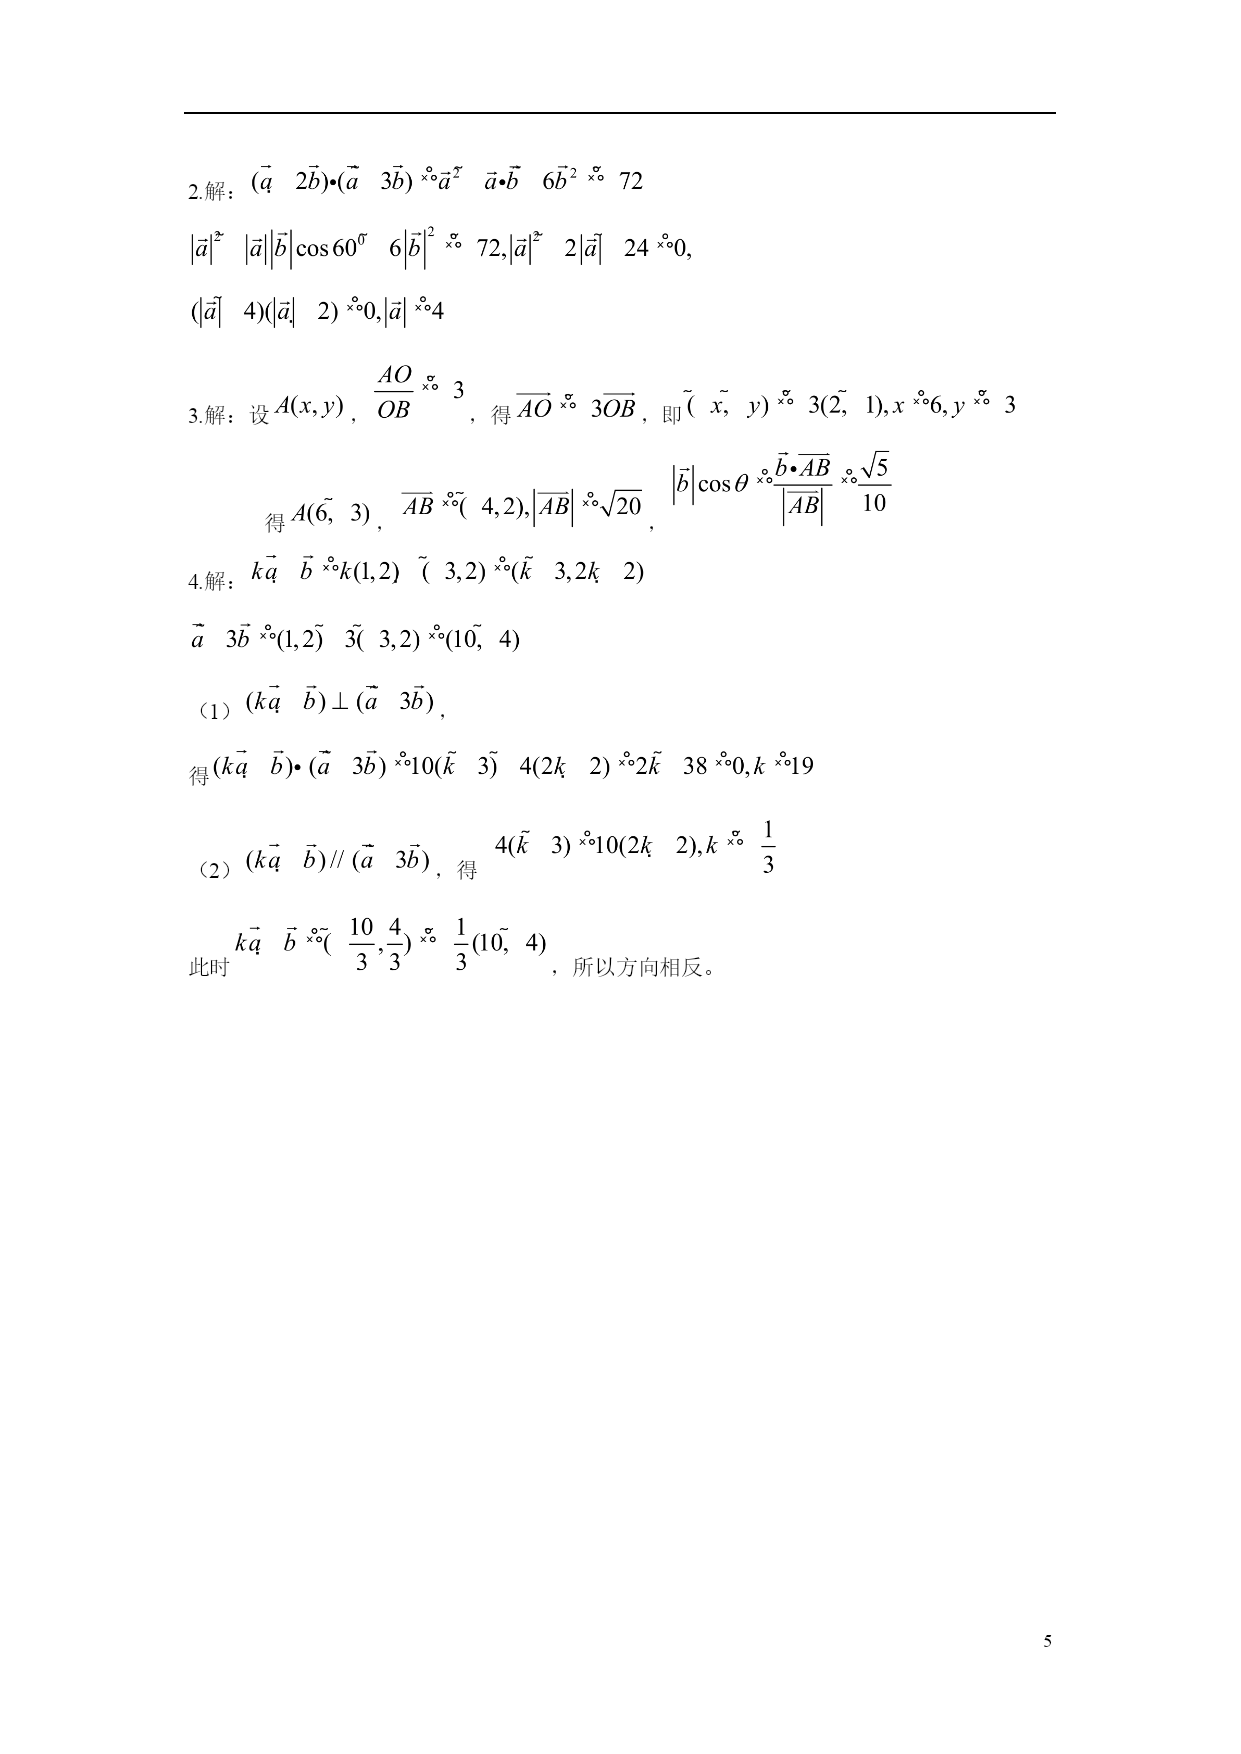 2.解：(a⃗ 2b⃗)•(a⃗ 3b⃗) a⃗² a⃗•b⃗ 6b⃗² 72
|a⃗|² |a⃗||b⃗|cos60⁰ 6|b⃗|² 72,|a⃗|² 2|a⃗| 24 0,
(|a⃗| 4)(|a⃗| 2) 0,|a⃗| 4
3.解：设A(x,y)，AO/OB 3，得AO 3OB，即( x, y) 3(2, 1),x 6,y 3
得A(6, 3)，AB ( 4,2),|AB| √20，|b⃗|cosθ b⃗•AB/|AB| √5/10
4.解：ka⃗ b⃗ k(1,2) ( 3,2) (k 3,2k 2)
a⃗ 3b⃗ (1,2) 3( 3,2) (10, 4)
（1）(ka⃗ b⃗)⊥(a⃗ 3b⃗)，
得(ka⃗ b⃗)•(a⃗ 3b⃗) 10(k 3) 4(2k 2) 2k 38 0,k 19
（2）(ka⃗ b⃗)//(a⃗ 3b⃗)，得 4(k 3) 10(2k 2),k 1/3
此时 ka⃗ b⃗ ( 10/3,4/3) 1/3(10, 4)，所以方向相反。
5